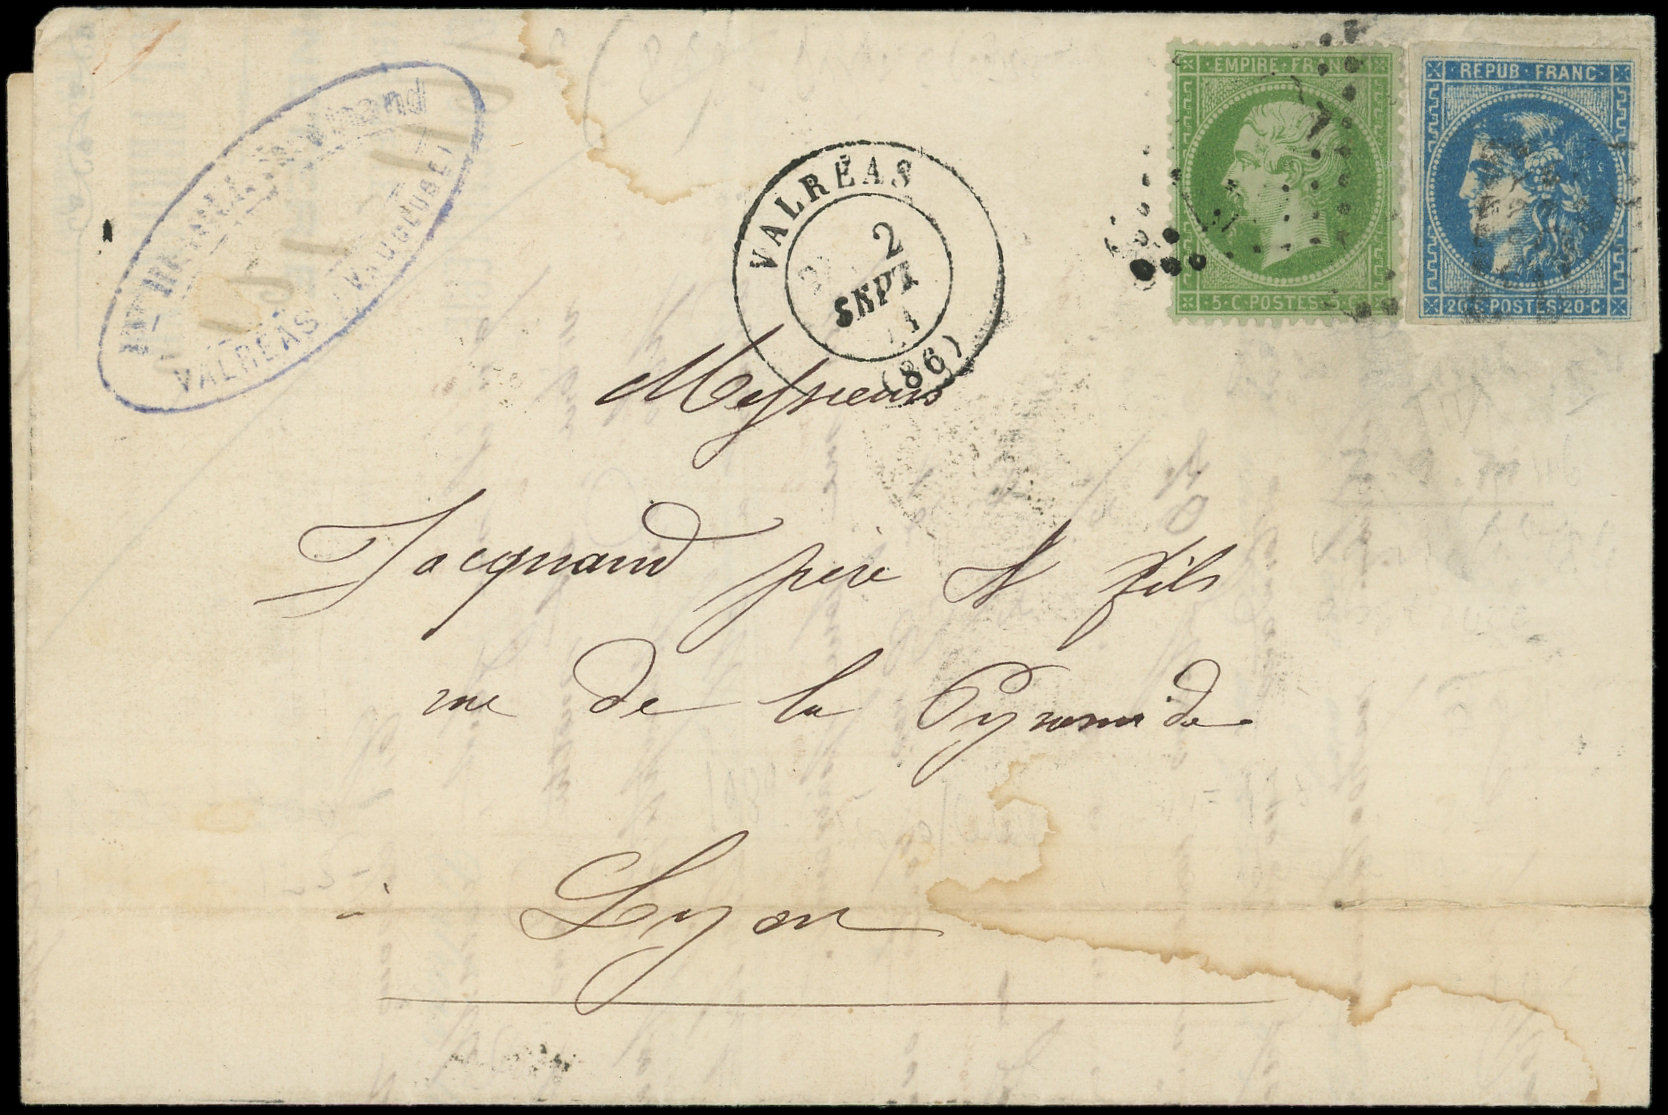 VALRÉAS (VAUCLUSE)
VALRÉAS
2
SEPT
(86)
EMPIRE FRANC
5 · C · POSTES · 5 · C
REPUB · FRANC ·
20 · C · POSTES · 20 · C
Messieurs
Jacquand père & fils
rue de la Pyramide
à Lyon